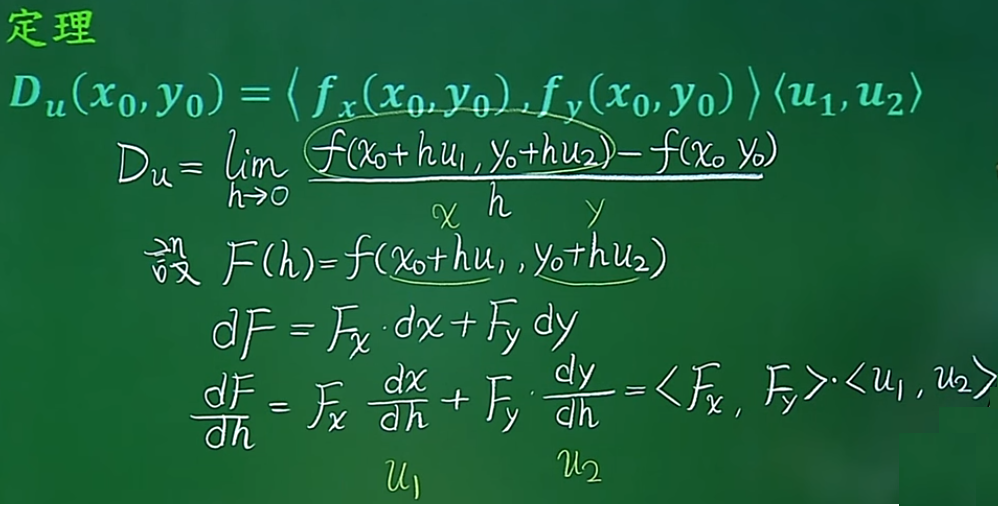 定理
D_u(x_0, y_0) = ⟨ f_x(x_0, y_0), f_y(x_0, y_0) ⟩⟨u_1, u_2⟩
D_u = lim_{h→0} \frac{f(x_0+hu_1, y_0+hu_2) - f(x_0 y_0)}{h}
x y
設 F(h) = f(x_0+hu_1, y_0+hu_2)
dF = F_x · dx + F_y dy
\frac{dF}{dh} = F_x \frac{dx}{dh} + F_y · \frac{dy}{dh} = <F_x, F_y>·<u_1, u_2>
u_1 u_2